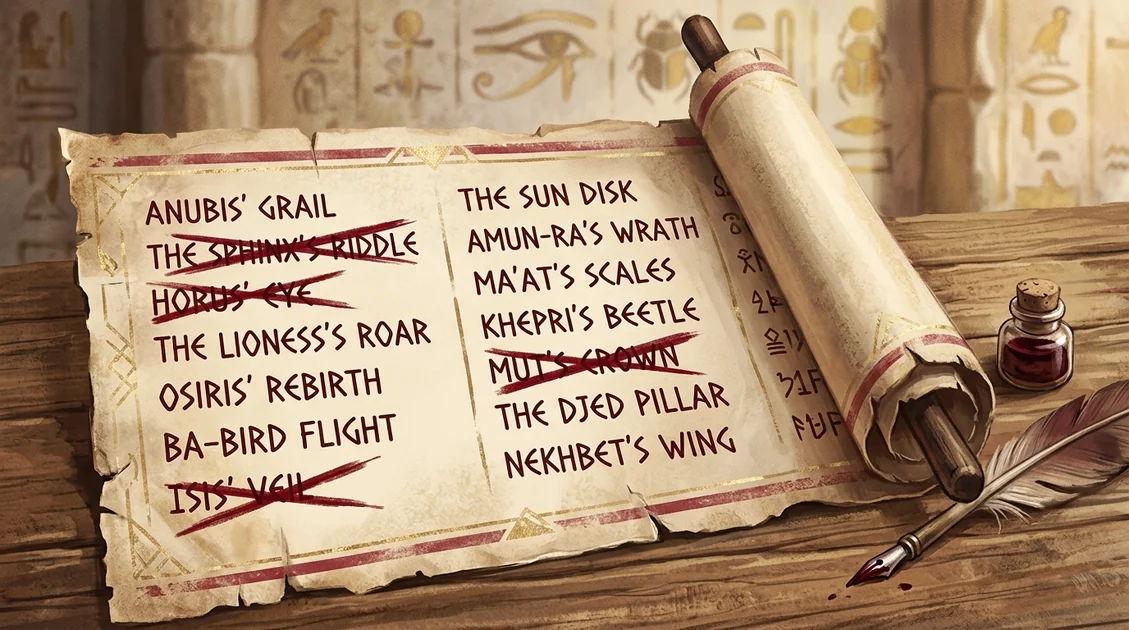 ANUBIS' GRAIL
THE SPHINX'S RIDDLE
HORUS' EYE
THE LIONESS'S ROAR
OSIRIS' REBIRTH
BA-BIRD FLIGHT
ISIS' VEIL
THE SUN DISK
AMUN-RA'S WRATH
MA'AT'S SCALES
KHEPRI'S BEETLE
MUT'S CROWN
THE DJED PILLAR
NEKHBET'S WING